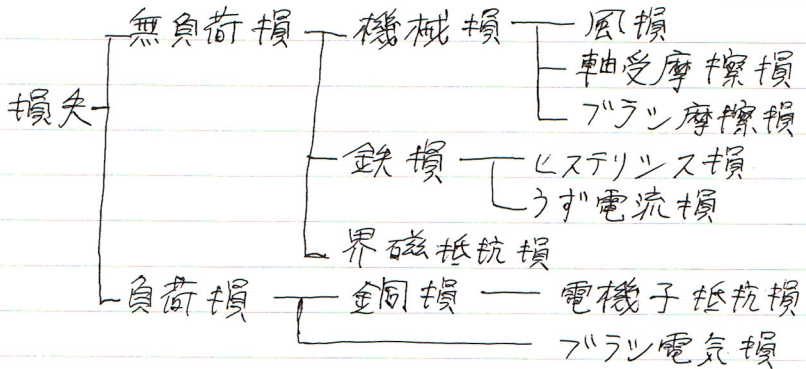 無負荷損 機械損 風損
軸受摩擦損
損失
ブラシ摩擦損
鉄損 ヒステリシス損
うず電流損
界磁抵抗損
負荷損 銅損 電機子抵抗損
ブラシ電気損